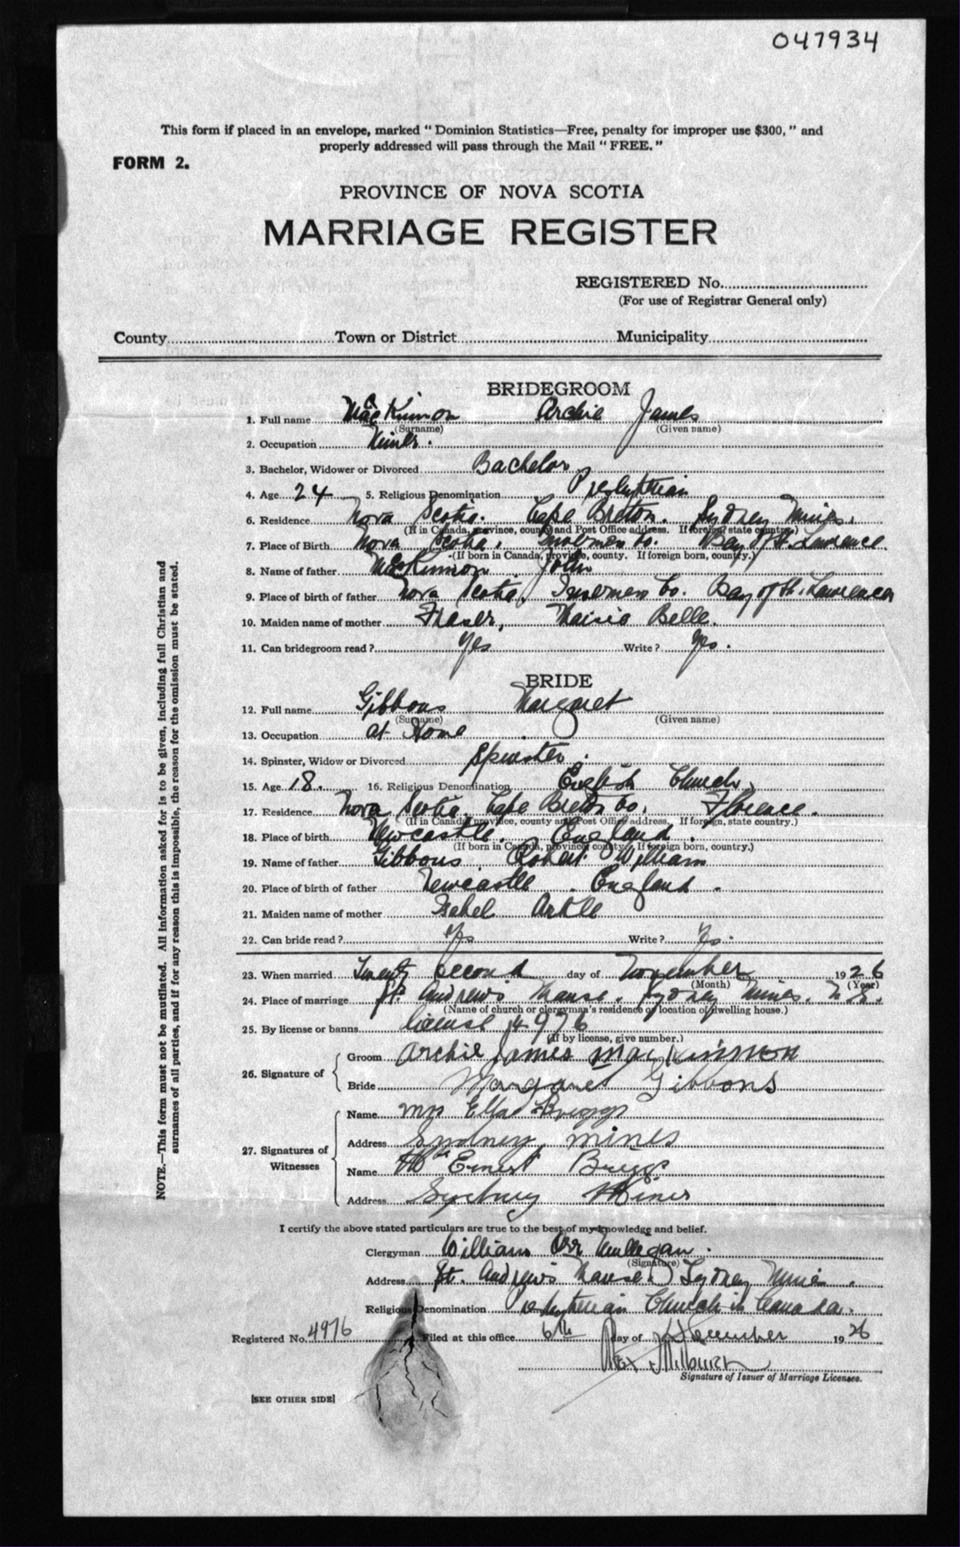 047934
This form if placed in an envelope, marked " Dominion Statistics—Free, penalty for improper use $300, " and
properly addressed will pass through the Mail " FREE. "
FORM 2.
PROVINCE OF NOVA SCOTIA
MARRIAGE REGISTER
REGISTERED No.
(For use of Registrar General only)
County Town or District Municipality
BRIDEGROOM
1. Full name MacKinnon Archie James
(Surname) (Given name)
2. Occupation Miner.
3. Bachelor, Widower or Divorced Bachelor
4. Age 24 5. Religious Denomination Presbyterian
6. Residence Nova Scotia. Cape Breton. Sydney Mines.
(If in Canada, province, county and Post Office address. If foreign, state country.)
7. Place of Birth Nova Scotia, Inverness Co. Bay of St. Lawrence
(If born in Canada, province, county. If foreign born, country.)
8. Name of father MacKinnon John
9. Place of birth of father Nova Scotia, Inverness Co. Bay of St. Lawrence
10. Maiden name of mother Fraser, Belle.
11. Can bridegroom read? Yes Write? Yes.
BRIDE
12. Full name Gibbons Margaret
(Surname) (Given name)
13. Occupation at Home
14. Spinster, Widow or Divorced Spinster.
15. Age 18. 16. Religious Denomination English Church
17. Residence Nova Scotia. Cape Breton Co. Florence.
(If in Canada, province, county and Post Office address. If foreign, state country.)
18. Place of birth Newcastle. England.
(If born in Canada, province, county. If foreign born, country.)
19. Name of father Gibbons Robert William
20. Place of birth of father Newcastle. England.
21. Maiden name of mother Isabel Arkle
22. Can bride read? Yes Write? Yes.
23. When married Twenty Second day of November 1926
(Month) (Year)
24. Place of marriage St. Andrew's Manse. Sydney Mines. N.S.
(Name of church or clergyman's residence or location of dwelling house.)
25. By license or banns license 4976
(If by license, give number.)
26. Signature of
Groom Archie James MacKinnon
Bride Margaret Gibbons
27. Signatures of Witnesses
Name Mrs Ella Briggs
Address Sydney Mines
Name Ernest Briggs
Address Sydney Mines
I certify the above stated particulars are true to the best of my knowledge and belief.
Clergyman William Orr Mulligan.
(Signature)
Address St. Andrew's Manse. Sydney Mines.
Religious Denomination Presbyterian Church in Canada.
Registered No. 4976 Filed at this office 6th day of December 1926
Milburn
Signature of Issuer of Marriage Licenses.
[SEE OTHER SIDE]
NOTE.—This form must not be mutilated. All information asked for is to be given, including full Christian and
surnames of all parties, and if for any reason this is impossible, the reason for the omission must be stated.